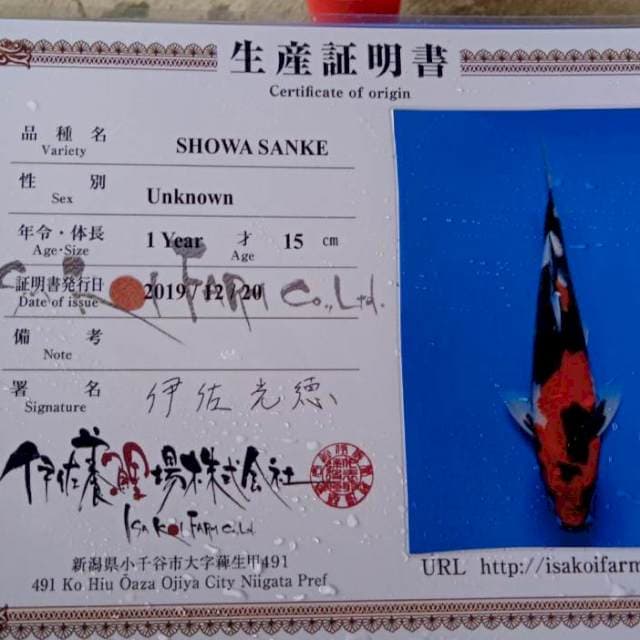 生産証明書
Certificate of origin
品種名
Variety
SHOWA SANKE
性別
Sex
Unknown
年令・体長
Age・Size
1 Year 才 15 cm
Age
証明書発行日
Date of issue
2019 / 12 / 20
Koi Farm Co., Ltd.
備考
Note
署名
Signature
伊佐光徳
伊佐養鯉場株式会社
ISA KOI FARM Co.Ltd
新潟県小千谷市大字薭生甲491
491 Ko Hiu Ōaza Ojiya City Niigata Pref
URL http://isakoifarm